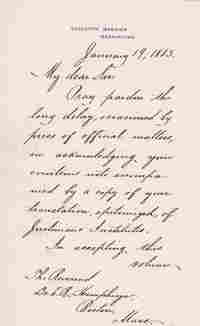 EXECUTIVE MANSION
WASHINGTON
January 19, 1883.
My dear Sir:
Pray pardon the
long delay, occasioned by
press of official matters,
in acknowledging your
courteous note accompa-
nied by a copy of your
translation, epitomized, of
Justinian's Institutes.
In accepting this
volume
The Reverend
Humphrey
Boston
Mass.